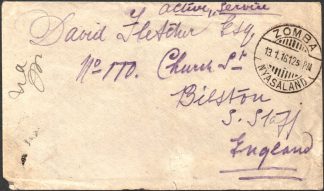 active Service
David Fletcher Esq
No 170. Church St
Bilston
S. Staff
England
ZOMBA
13.1.16 12 15 PM
NYASALAND